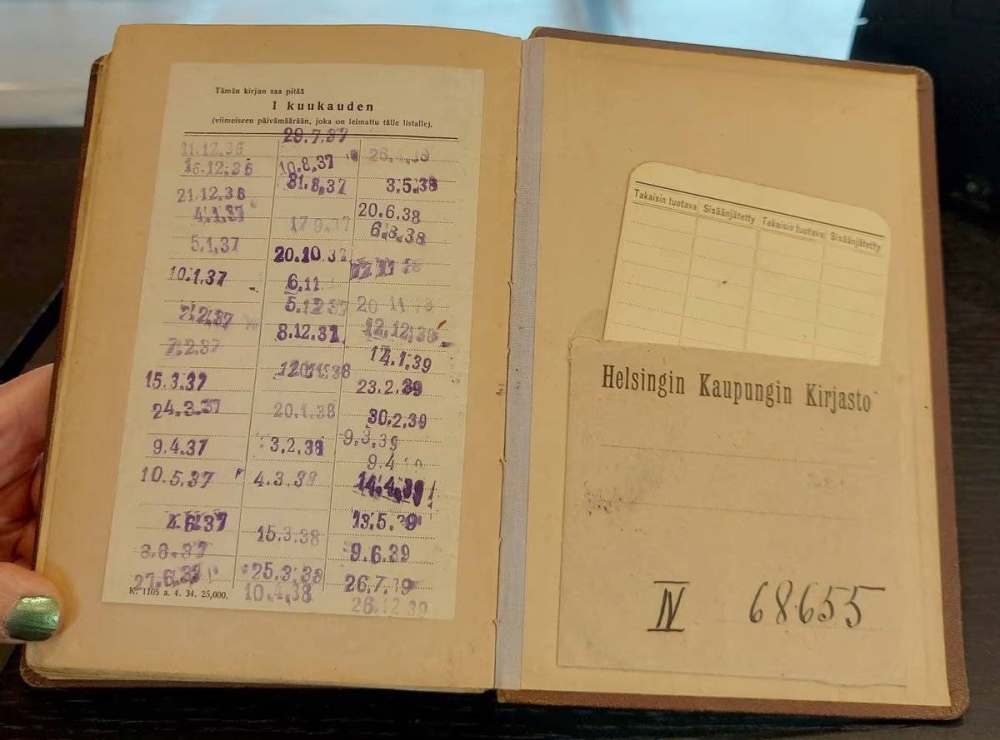 Tämän kirjan saa pitää
1 kuukauden
(viimeiseen päivämäärään, joka on leimattu tälle listalle).
11.12.36
16.12.36
21.12.36
4.1.37
5.1.37
10.1.37
7.2.37
15.3.37
24.3.37
9.4.37
10.5.37
4.6.37
27.6.39
K. 1105 a. 4. 34. 25,000.
29.7.37
10.8.37
31.8.37
17.9.37
20.10.37
6.11
5.12.37
8.12.37
20.1.38
3.2.38
4.3.38
15.3.38
25.3.38
10.4.38
3.5.38
20.6.38
6.8.38
20 11
12.12.38
17.1.39
23.2.39
30.2.39
9.3.39
9.4
14.4.39
13.5.39
9.6.39
26.7.39
28.12.39
Takaisin tuotava Sisäänjätetty Takaisin tuotava Sisäänjätetty
Helsingin Kaupungin Kirjasto
IV 68655